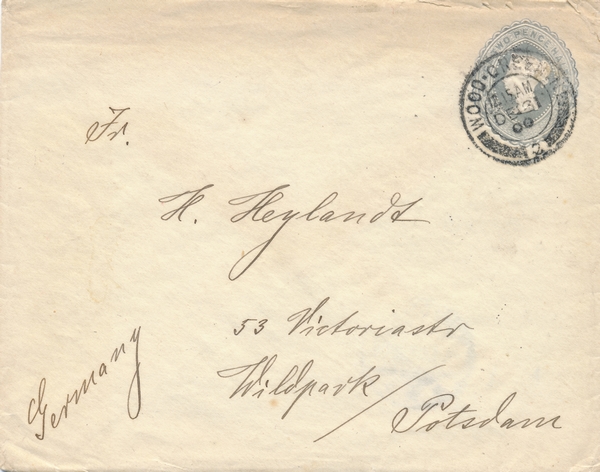 TWO PENCE
WOOD-GREEN
5 AM
DE 31
00
12
Fr.
H. Heylandt
53 Victoriastr
Wildpark / Potsdam
Germany